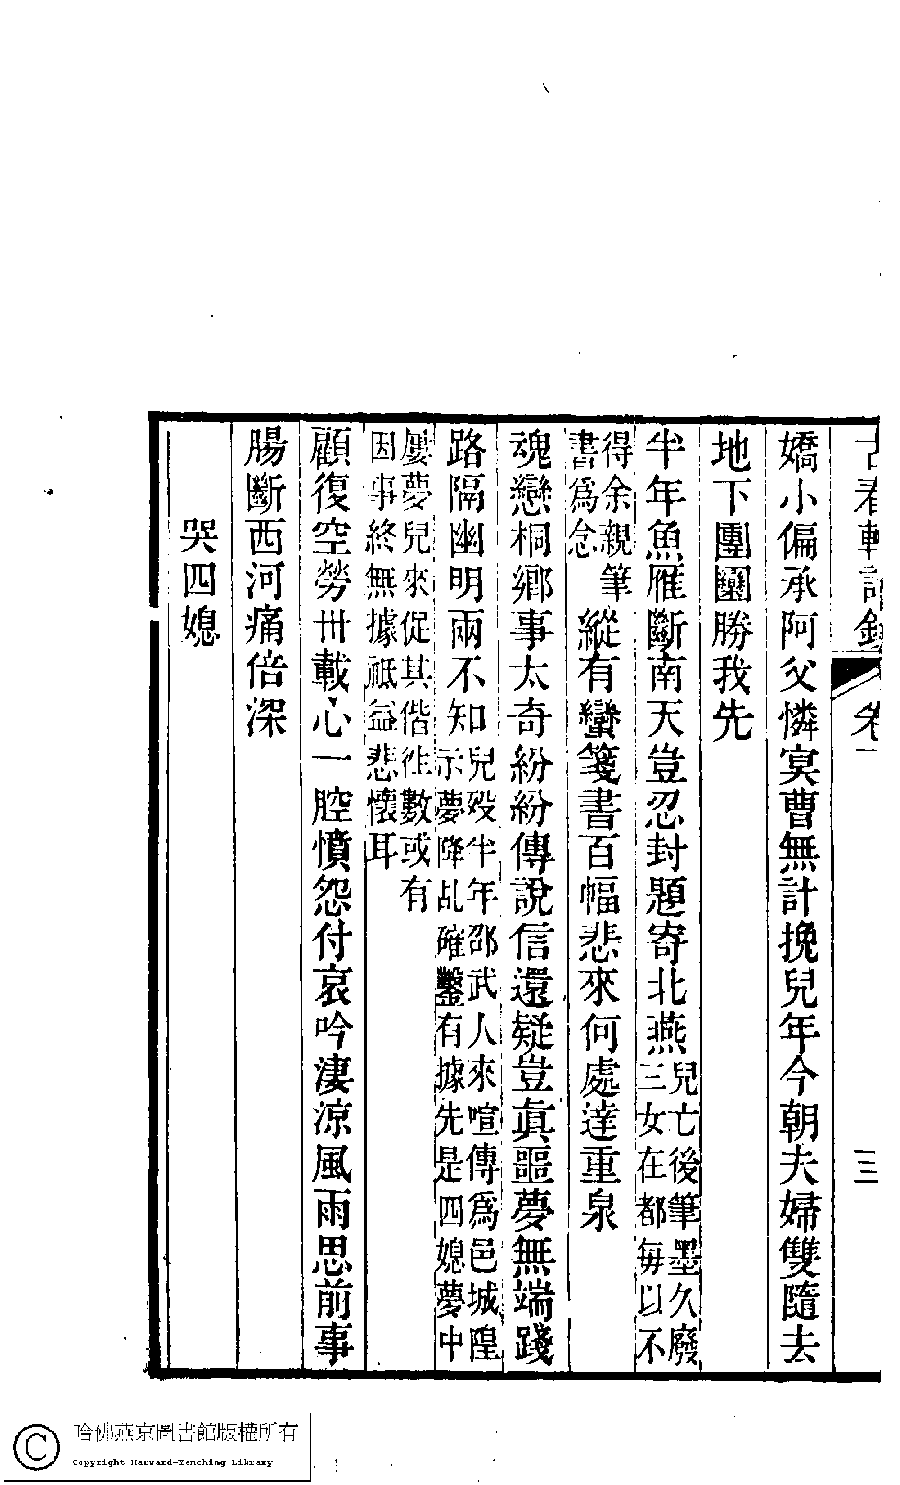 古春軒詩鈔 卷一 三
嬌小偏承阿父憐冥曹無計挽兒年今朝夫婦雙隨去
地下團圞勝我先
半年魚雁斷南天豈忍封題寄北燕兒亡後筆墨久廢三女在都每以不
得余親筆書爲念縱有蠻箋書百幅悲來何處達重泉
魂戀桐鄉事太奇紛紛傳說信還疑豈眞噩夢無端踐
路隔幽明兩不知兒殁半年邵武人來喧傳爲邑城隍示夢降乩確鑿有據先是四媳夢中
屢夢兒來促其偕往數或有因事終無據祗益悲懷耳
顧復空勞卅載心一腔憤怨付哀吟淒涼風雨思前事
腸斷西河痛倍深
哭四媳
哈佛燕京圖書館版權所有
Copyright Harvard-Yenching Library